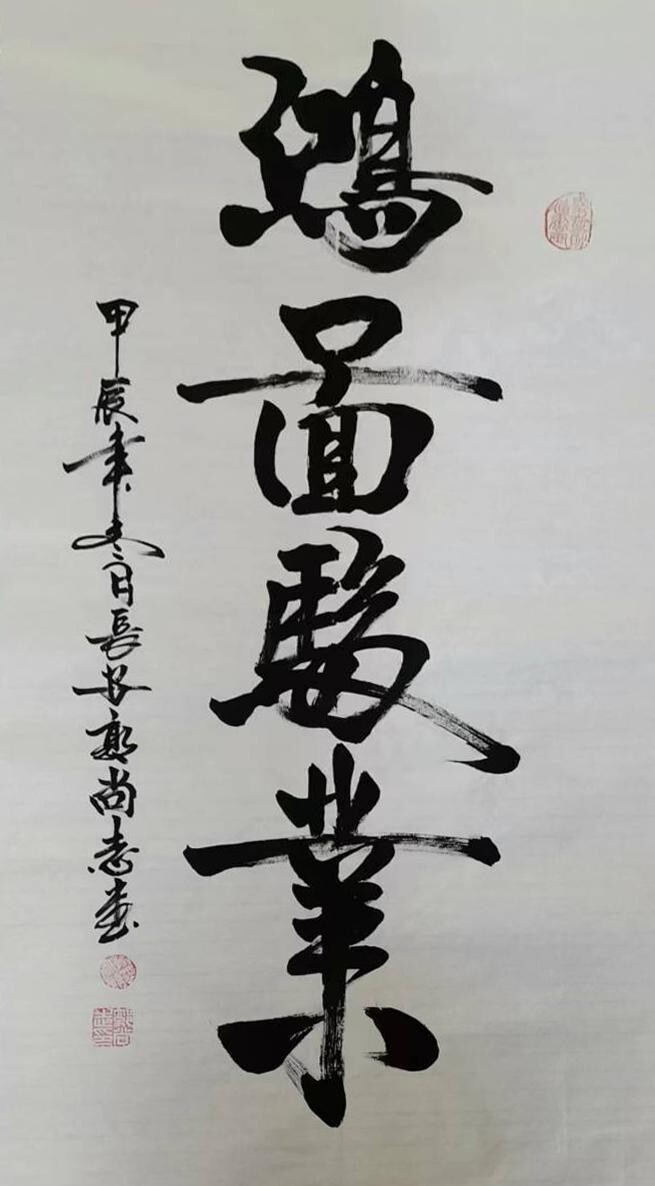 鴻圖駿業
甲辰年冬月長安郭尚志書